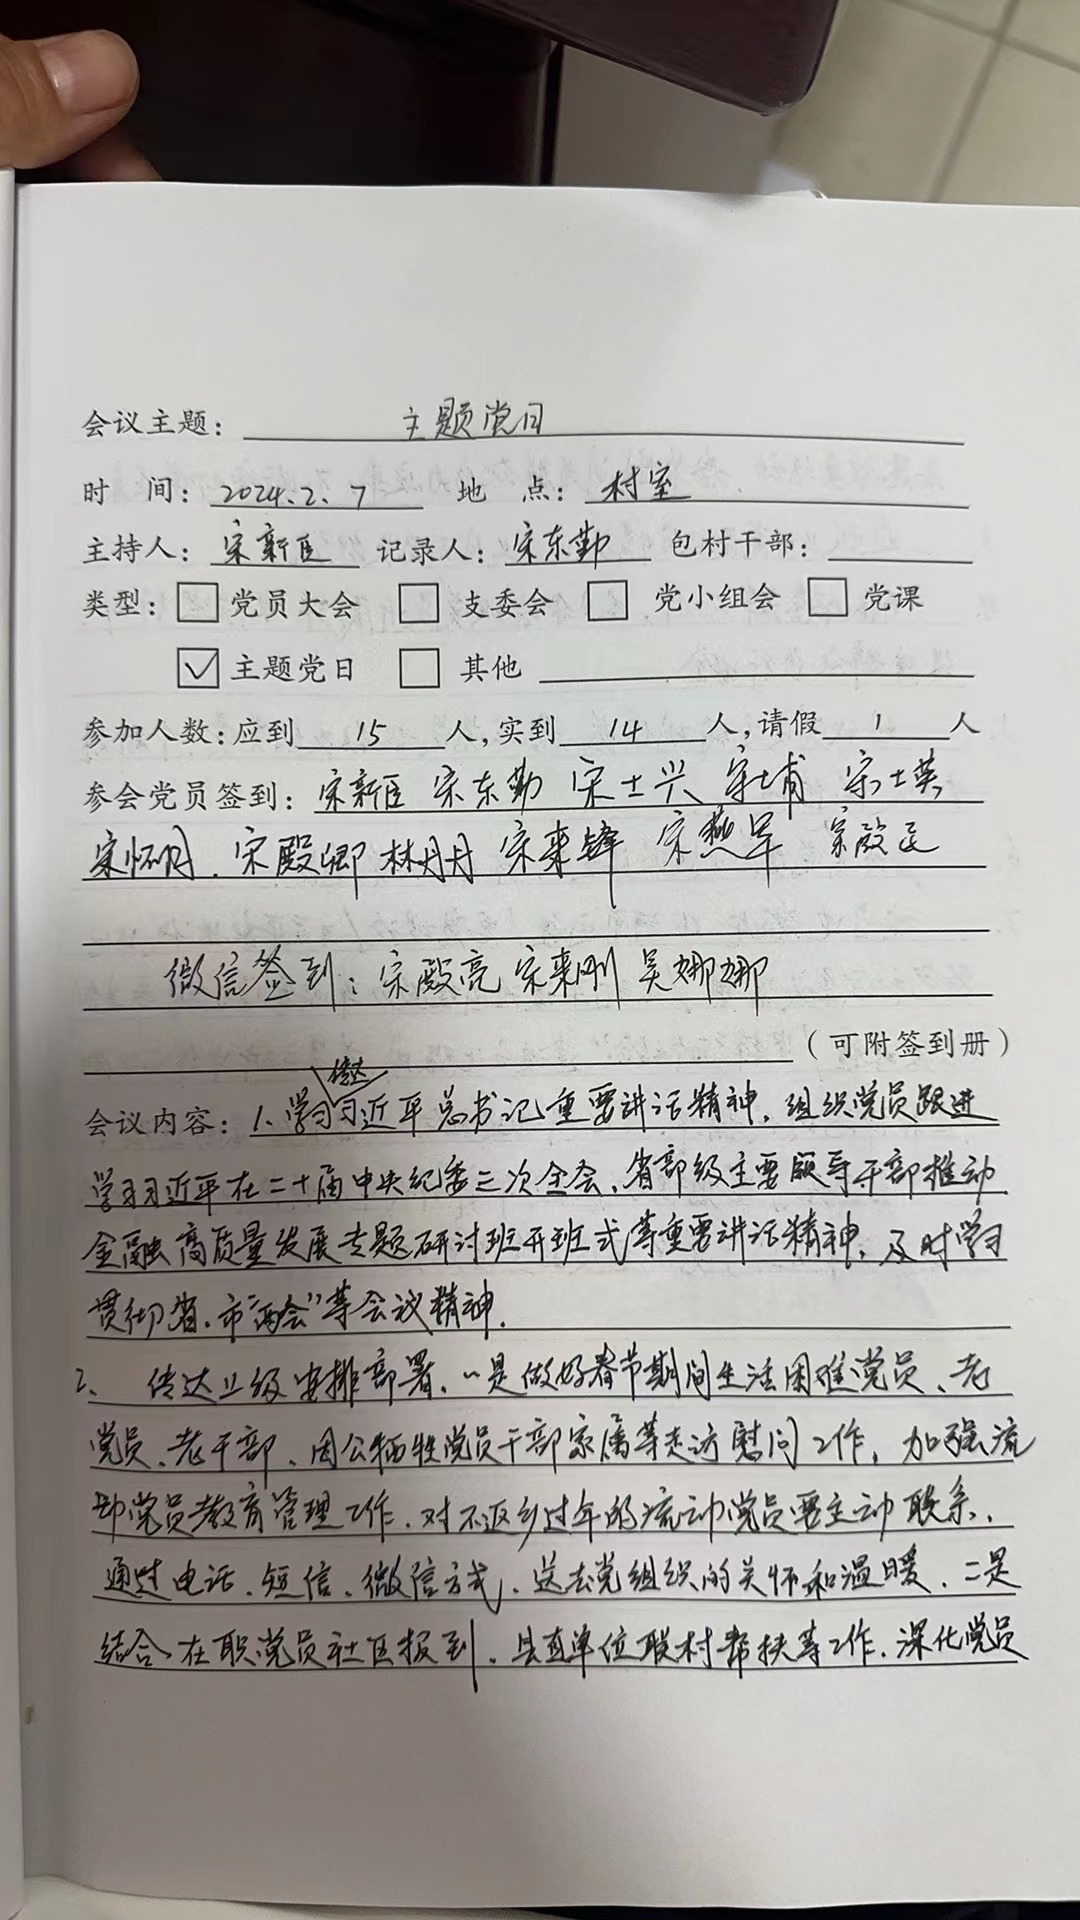 会议主题： 主题党日
时 间：2024.2.7 地 点：村室
主持人：宋新臣 记录人：宋东勤 包村干部：
类型：□党员大会 □支委会 □党小组会 □党课
☑主题党日 □其他
参加人数：应到 15 人，实到 14 人，请假 1 人
参会党员签到：宋新臣 宋东勤 宋士兴 宋士甫 宋士英
宋怀月、宋殿卿 林丹丹 宋来锋 宋燕军 宋殿正
微信签到：宋殿亮 宋来刚 吴娜娜
（可附签到册）
传达
会议内容：1、学习习近平总书记重要讲话精神，组织党员跟进
学习习近平在二十届中央纪委三次全会、省部级主要领导干部推动
金融高质量发展专题研讨班开班式等重要讲话精神，及时学习
贯彻省、市“两会”等会议精神，
2、传达上级安排部署，一是做好春节期间生活困难党员、老
党员、老干部、因公牺牲党员干部家属等走访慰问工作，加强流
动党员教育管理工作，对不返乡过年的流动党员要主动联系，
通过电话、短信、微信方式，送去党组织的关怀和温暖，二是
结合在职党员社区报到，县直单位联村帮扶等工作，深化党员